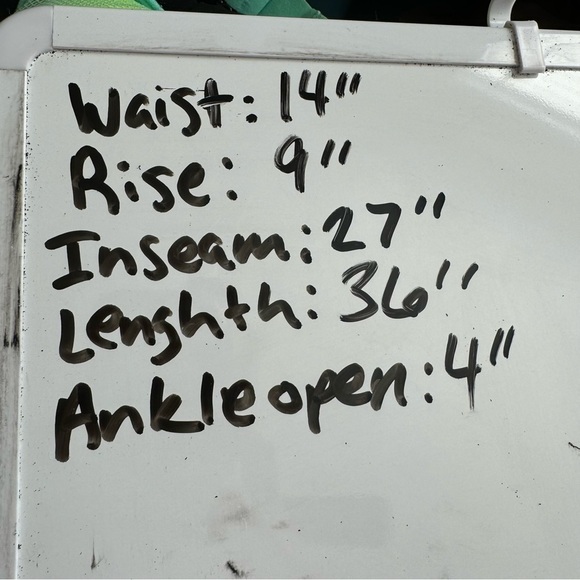 Waist: 14"
Rise: 9"
Inseam: 27"
Lenghth: 36"
Ankle open: 4"